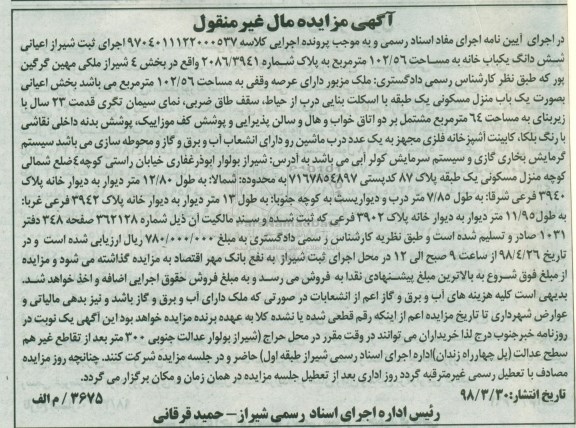 آگهی مزایده مال غیر منقول
در اجرای آیین نامه اجرای مفاد اسناد رسمی و به موجب پرونده اجرایی کلاسه ۹۷۰۴۰۱۱۱۲۲۰۰۰۵۳۷ اجرای ثبت شیراز اعیانی
شش دانگ یکباب خانه به مساحت ۱۰۲/۵۶ مترمربع به پلاک شماره ۲۰۸۶/۳۹۴۱ واقع در بخش ۴ شیراز ملکی مهین گرگین
پور که طبق نظر کارشناس رسمی دادگستری: ملک مزبور دارای عرصه وقفی به مساحت ۱۰۲/۵۶ مترمربع می باشد بخش اعیانی
بصورت یک باب منزل مسکونی یک طبقه با اسکلت بنایی درب از حیاط، سقف طاق ضربی، نمای سیمان نگری قدمت ۲۳ سال با
زیربنای به مساحت ۶۴ مترمربع مشتمل بر دو اتاق خواب و هال و سالن پذیرایی و پوشش کف موزاییک، پوشش بدنه داخلی نقاشی
با رنگ بلکا، کابینت آشپزخانه فلزی مجهز به یک عدد درب ماشین رو دارای انشعاب آب و برق و گاز و محوطه سازی می باشد سیستم
گرمایش بخاری گازی و سیستم سرمایش کولر آبی می باشد به آدرس: شیراز بولوار ابوذرغفاری خیابان راستی کوچه ۴ ضلع شمالی
کوچه منزل مسکونی یک طبقه پلاک ۸۷ کدپستی ۷۱۶۷۸۵۴۸۹۷ به محدوده: شمالا: به طول ۱۲/۸۰ متر دیوار به دیوار خانه پلاک
۳۹۴۰ فرعی شرقا: به طول ۷/۸۵ متر درب و دیواریست به کوچه جنوبا: به طول ۱۳ متر دیوار به دیوار خانه پلاک ۳۹۴۲ فرعی غربا:
به طول ۱۱/۹۵ متر دیوار به دیوار خانه پلاک ۳۹۰۲ فرعی که ثبت شده و سند مالکیت آن ذیل شماره ۳۶۲۱۲۸ صفحه ۳۴۸ دفتر
۱۰۳۱ صادر و تسلیم شده است و طبق نظریه کارشناس رسمی دادگستری به مبلغ ۷۸۰/۰۰۰/۰۰۰ ریال ارزیابی شده است و در
تاریخ ۹۸/۴/۲۶ از ساعت ۹ صبح الی ۱۲ در محل اجرای ثبت شیراز به نفع بانک مهر اقتصاد به مزایده گذاشته می شود و مزایده
از مبلغ فوق شروع به بالاترین مبلغ پیشنهادی نقدا به فروش می رسد و به مبلغ فروش حقوق اجرایی اضافه و اخذ خواهد شد.
بدیهی است کلیه هزینه های آب و برق و گاز اعم از انشعابات در صورتی که ملک دارای آب و برق و گاز باشد و نیز بدهی مالیاتی و
عوارض شهرداری تا تاریخ مزایده اعم از اینکه رقم قطعی شده یا نشده کلا به عهده برنده مزایده خواهد بود این آگهی یک نوبت در
روزنامه خبرجنوب درج لذا خریداران می توانند در وقت مقرر در محل حراج (شیراز بولوار عدالت جنوبی ۳۰۰ متر بعد از تقاطع غیر هم
سطح عدالت (پل چهارراه زندان) اداره اجرای اسناد رسمی شیراز طبقه اول) حاضر و در جلسه مزایده شرکت کنند. چنانچه روز مزایده
مصادف با تعطیل رسمی غیرمترقبه گردد روز اداری بعد از تعطیل جلسه مزایده در همان زمان و مکان برگزار می گردد.
تاریخ انتشار: ۹۸/۳/۳۰
۳۶۷۵/ م الف
رئیس اداره اجرای اسناد رسمی شیراز – حمید قرقانی